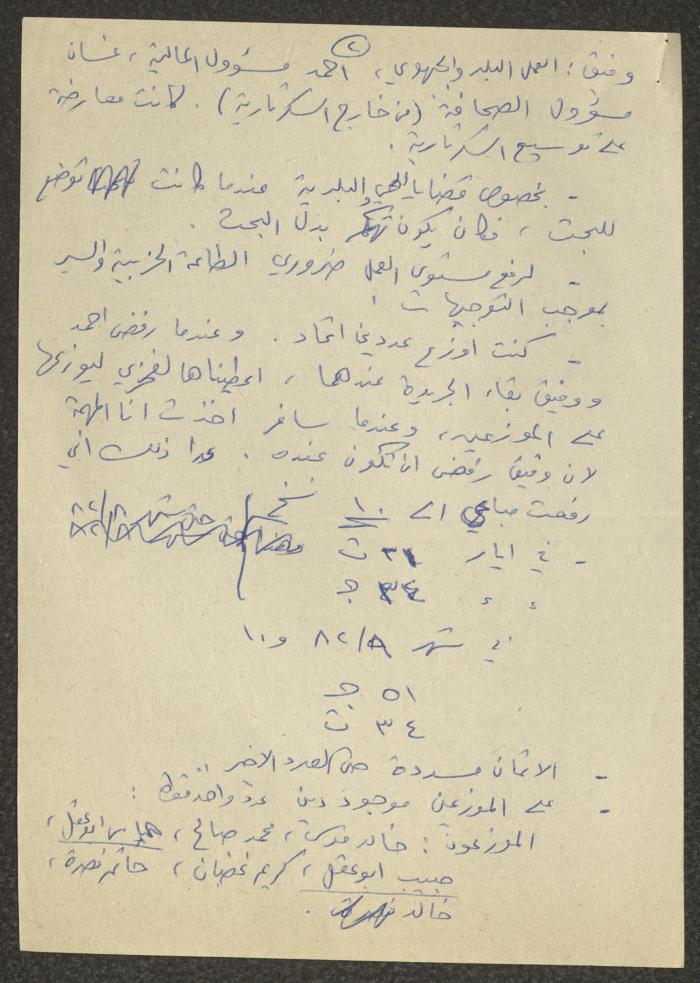 (٢)
وفيق: العمل البلدي والجهوي، احمد مسؤول المالية، غسان
مسؤول الصحافة (من خارج السكرتارية). كانت معارضة
على توسيع السكرتارية.
- بخصوص قضايا الحي والبلدية عندما كانت توضع
للبحث، فكان يكون تهكم بدل البحث.
- لرفع مستوى العمل ضروري الطاعة الحزبية والسير
بموجب التوجيهات!
- كنت اوزع عددين اتحاد. وعندما رفض احمد
ووفيق بقاء الجريدة عندهما، اعطيناها لفخري ليوزعها
على الموزعين، وعندما سافر اخذت انا المهمة
لان وفيق رفض ان تكون عنده. عدا ذلك اني
رفعت مبايعي الى ١٠ نسخ
- في ايار ٣١ ت
ء ء ٣٤ ج
في شهر ٨٢/٨ و١٠
٥١ ج
٣٤ ت
- الاثمان مسددة حتى العدد الاخير
- على الموزعين موجود دين عدد واحد فقط:
الموزعون: خالد، محمد صالح، ابو عقل،
حبيب ابو عقل، كريم غضبان، حاتم نصرة،
خالد